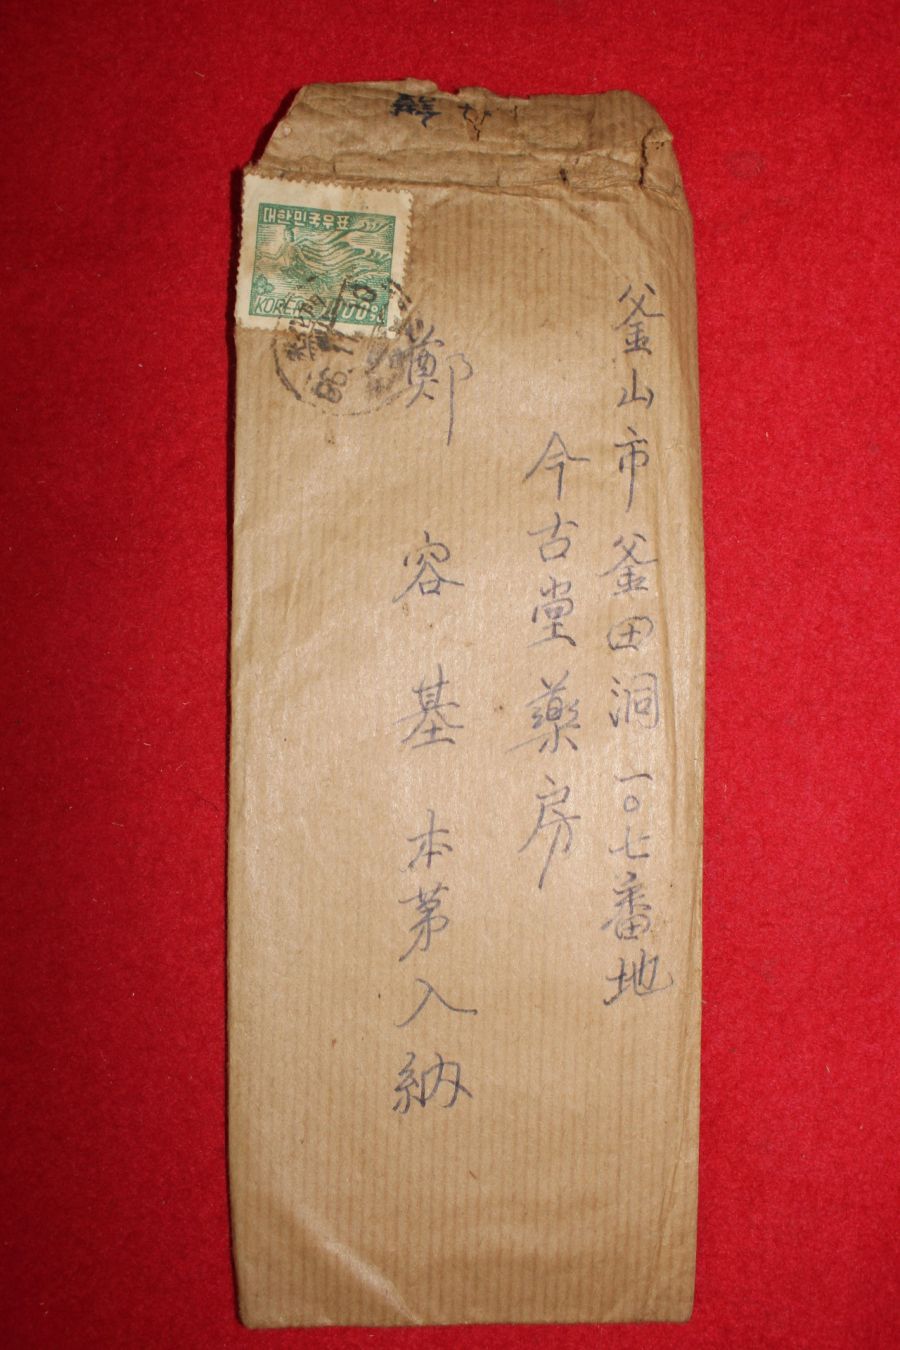 釜山市釜田洞一〇七番地
今古堂藥房
鄭容基本第入納
대한민국우표
KOREA